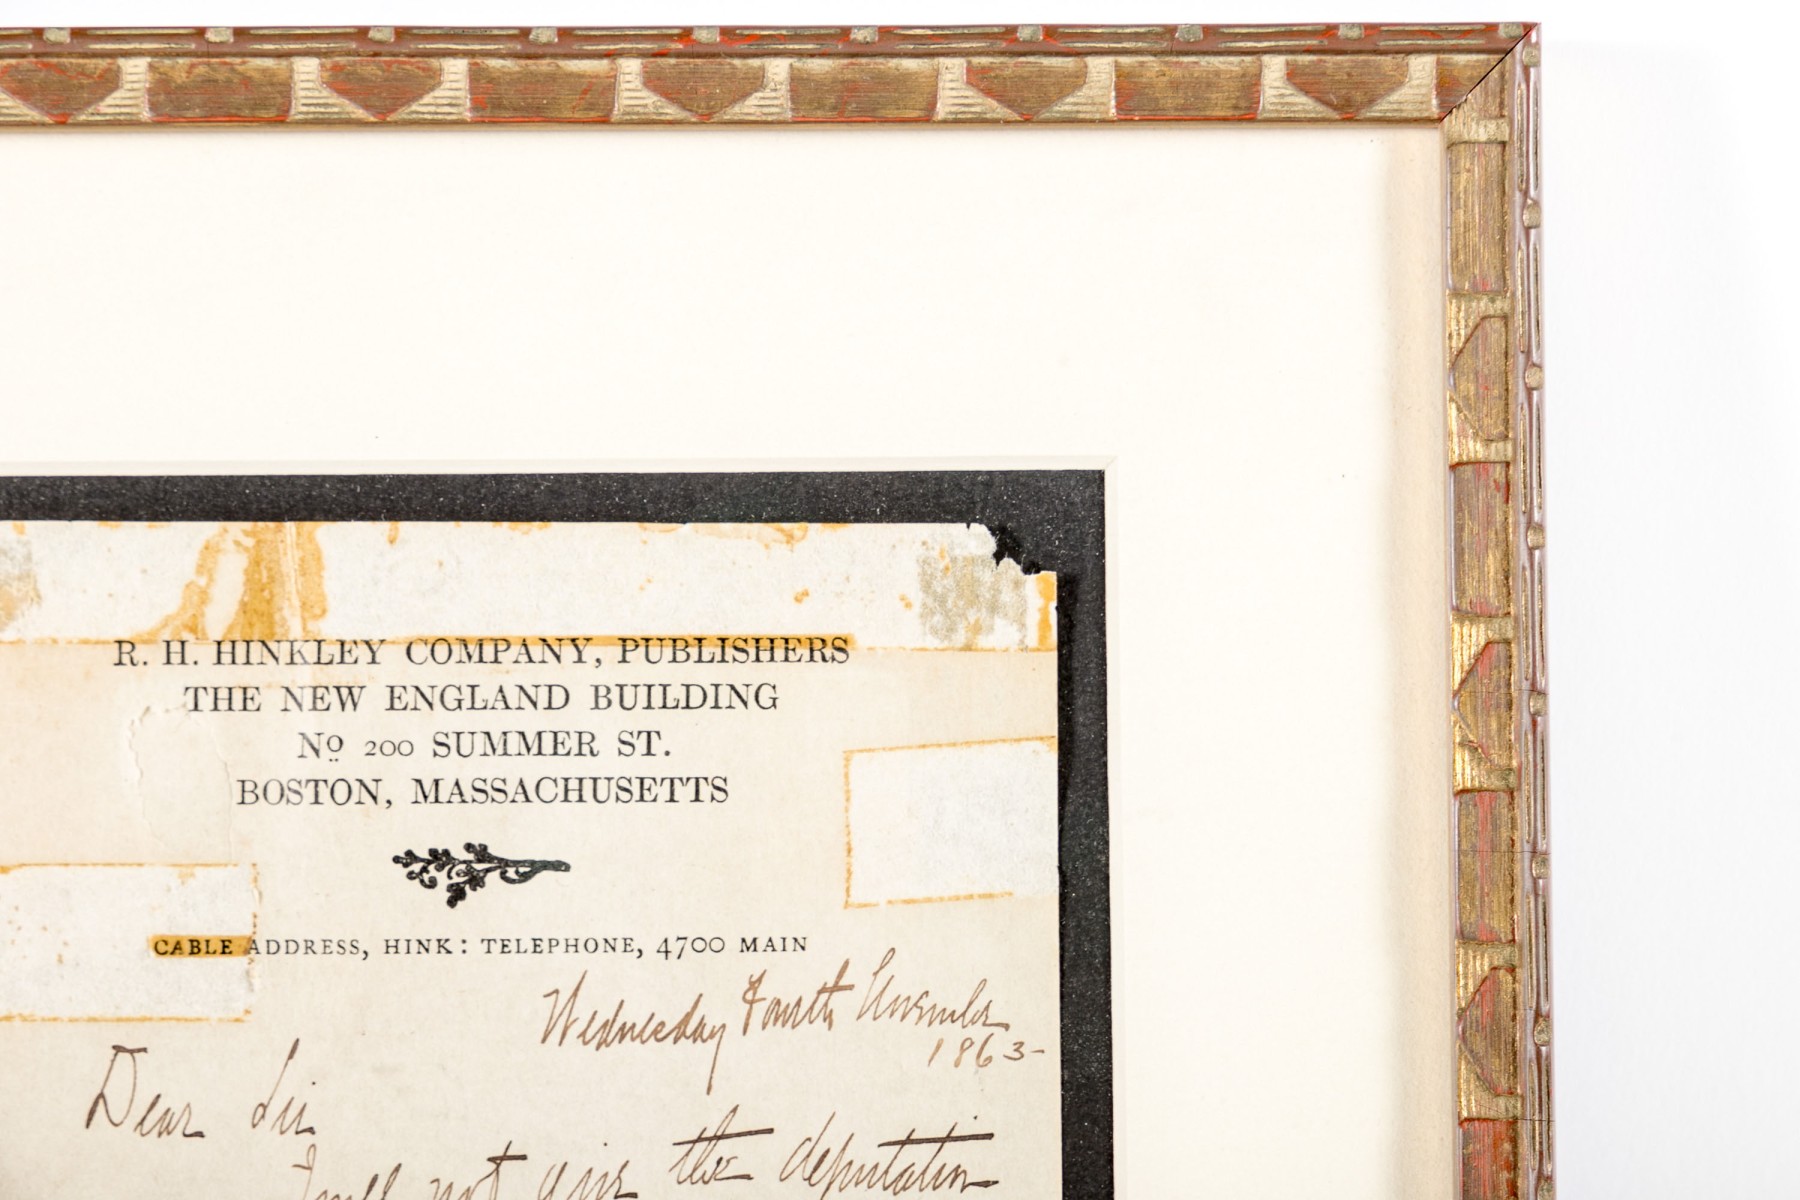 R. H. HINKLEY COMPANY, PUBLISHERS
THE NEW ENGLAND BUILDING
Nº 200 SUMMER ST.
BOSTON, MASSACHUSETTS
CABLE ADDRESS, HINK: TELEPHONE, 4700 MAIN
Wednesday Fourth November
1863-
Dear Sir
I will not give the deputation